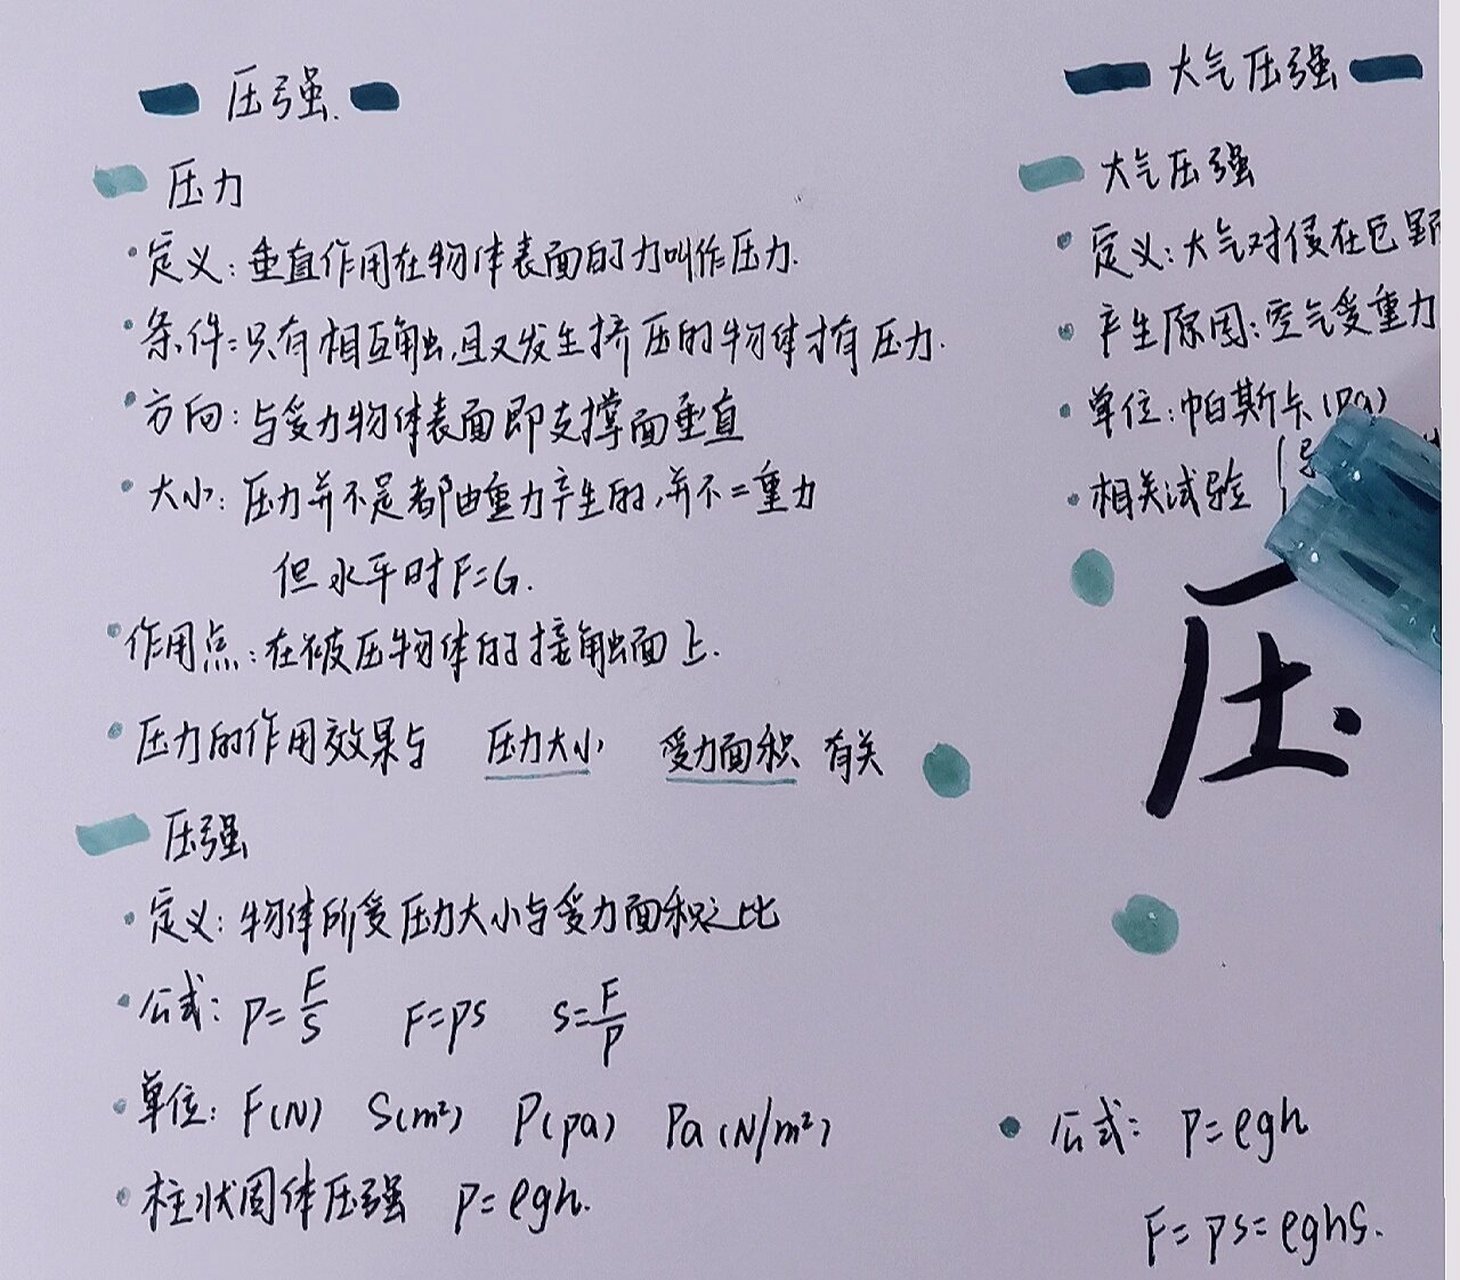 压强.
压力
·定义:垂直作用在物体表面的力叫作压力.
·条件:只有相互触,且又发生挤压的物体才有压力.
·方向:与受力物体表面即支撑面垂直
·大小:压力并不是都由重力产生的,并不=重力
但水平时F=G.
·作用点:在被压物体的接触面上.
·压力的作用效果与 压力大小 受力面积 有关
压强
·定义:物体所受压力大小与受力面积之比
·公式: P=F/S F=PS S=F/P
·单位: F(N) S(m²) P(pa) Pa(N/m²)
·柱状固体压强 P=ρgh.
大气压强
大气压强
·定义:大气对侵在它里面
·产生原因:空气受重力
·单位:帕斯卡(Pa)
·相关试验 {
压
·公式: P=ρgh
F=PS=ρghS.